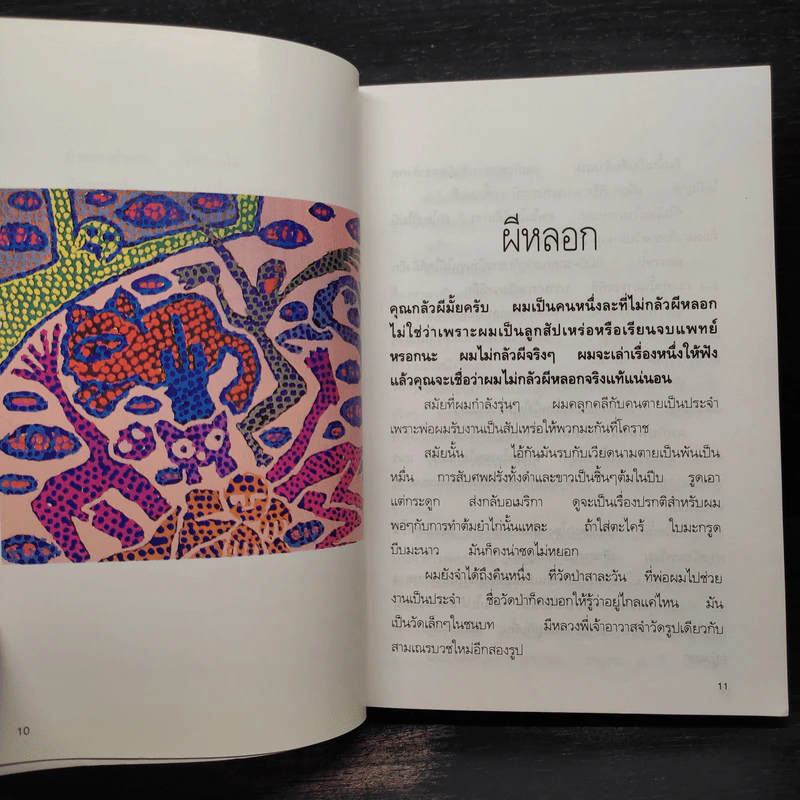 10
ผีหลอก
คุณกลัวผีมั้ยครับ ผมเป็นคนหนึ่งละที่ไม่กลัวผีหลอก
ไม่ใช่ว่าเพราะผมเป็นลูกสัปเหร่อหรือเรียนจบแพทย์
หรอกนะ ผมไม่กลัวผีจริงๆ ผมจะเล่าเรื่องหนึ่งให้ฟัง
แล้วคุณจะเชื่อว่าผมไม่กลัวผีหลอกจริงแท้แน่นอน
สมัยที่ผมกำลังรุ่นๆ ผมคลุกคลีกับคนตายเป็นประจำ
เพราะพ่อผมรับงานเป็นสัปเหร่อให้พวกมะกันที่โคราช
สมัยนั้น ไอ้กันมันรบกับเวียดนามตายเป็นพันเป็น
หมื่น การสับศพฝรั่งทั้งดำและขาวเป็นชิ้นๆต้มในปีบ รูดเอา
แต่กระดูก ส่งกลับอเมริกา ดูจะเป็นเรื่องปรกติสำหรับผม
พอๆกับการทำต้มยำไก่นั้นเหละ ถ้าใส่ตะไคร้ ใบมะกรูด
บีบมะนาว มันก็คงน่าซดไม่หยอก
ผมยังจำได้ถึงคืนหนึ่ง ที่วัดป่าสาละวัน ที่พ่อผมไปช่วย
งานเป็นประจำ ชื่อวัดป่าก็คงบอกให้รู้ว่าอยู่ไกลแค่ไหน มัน
เป็นวัดเล็กๆในชนบท มีหลวงพี่เจ้าอาวาสจำวัดรูปเดียวกับ
สามเณรบวชใหม่อีกสองรูป
11